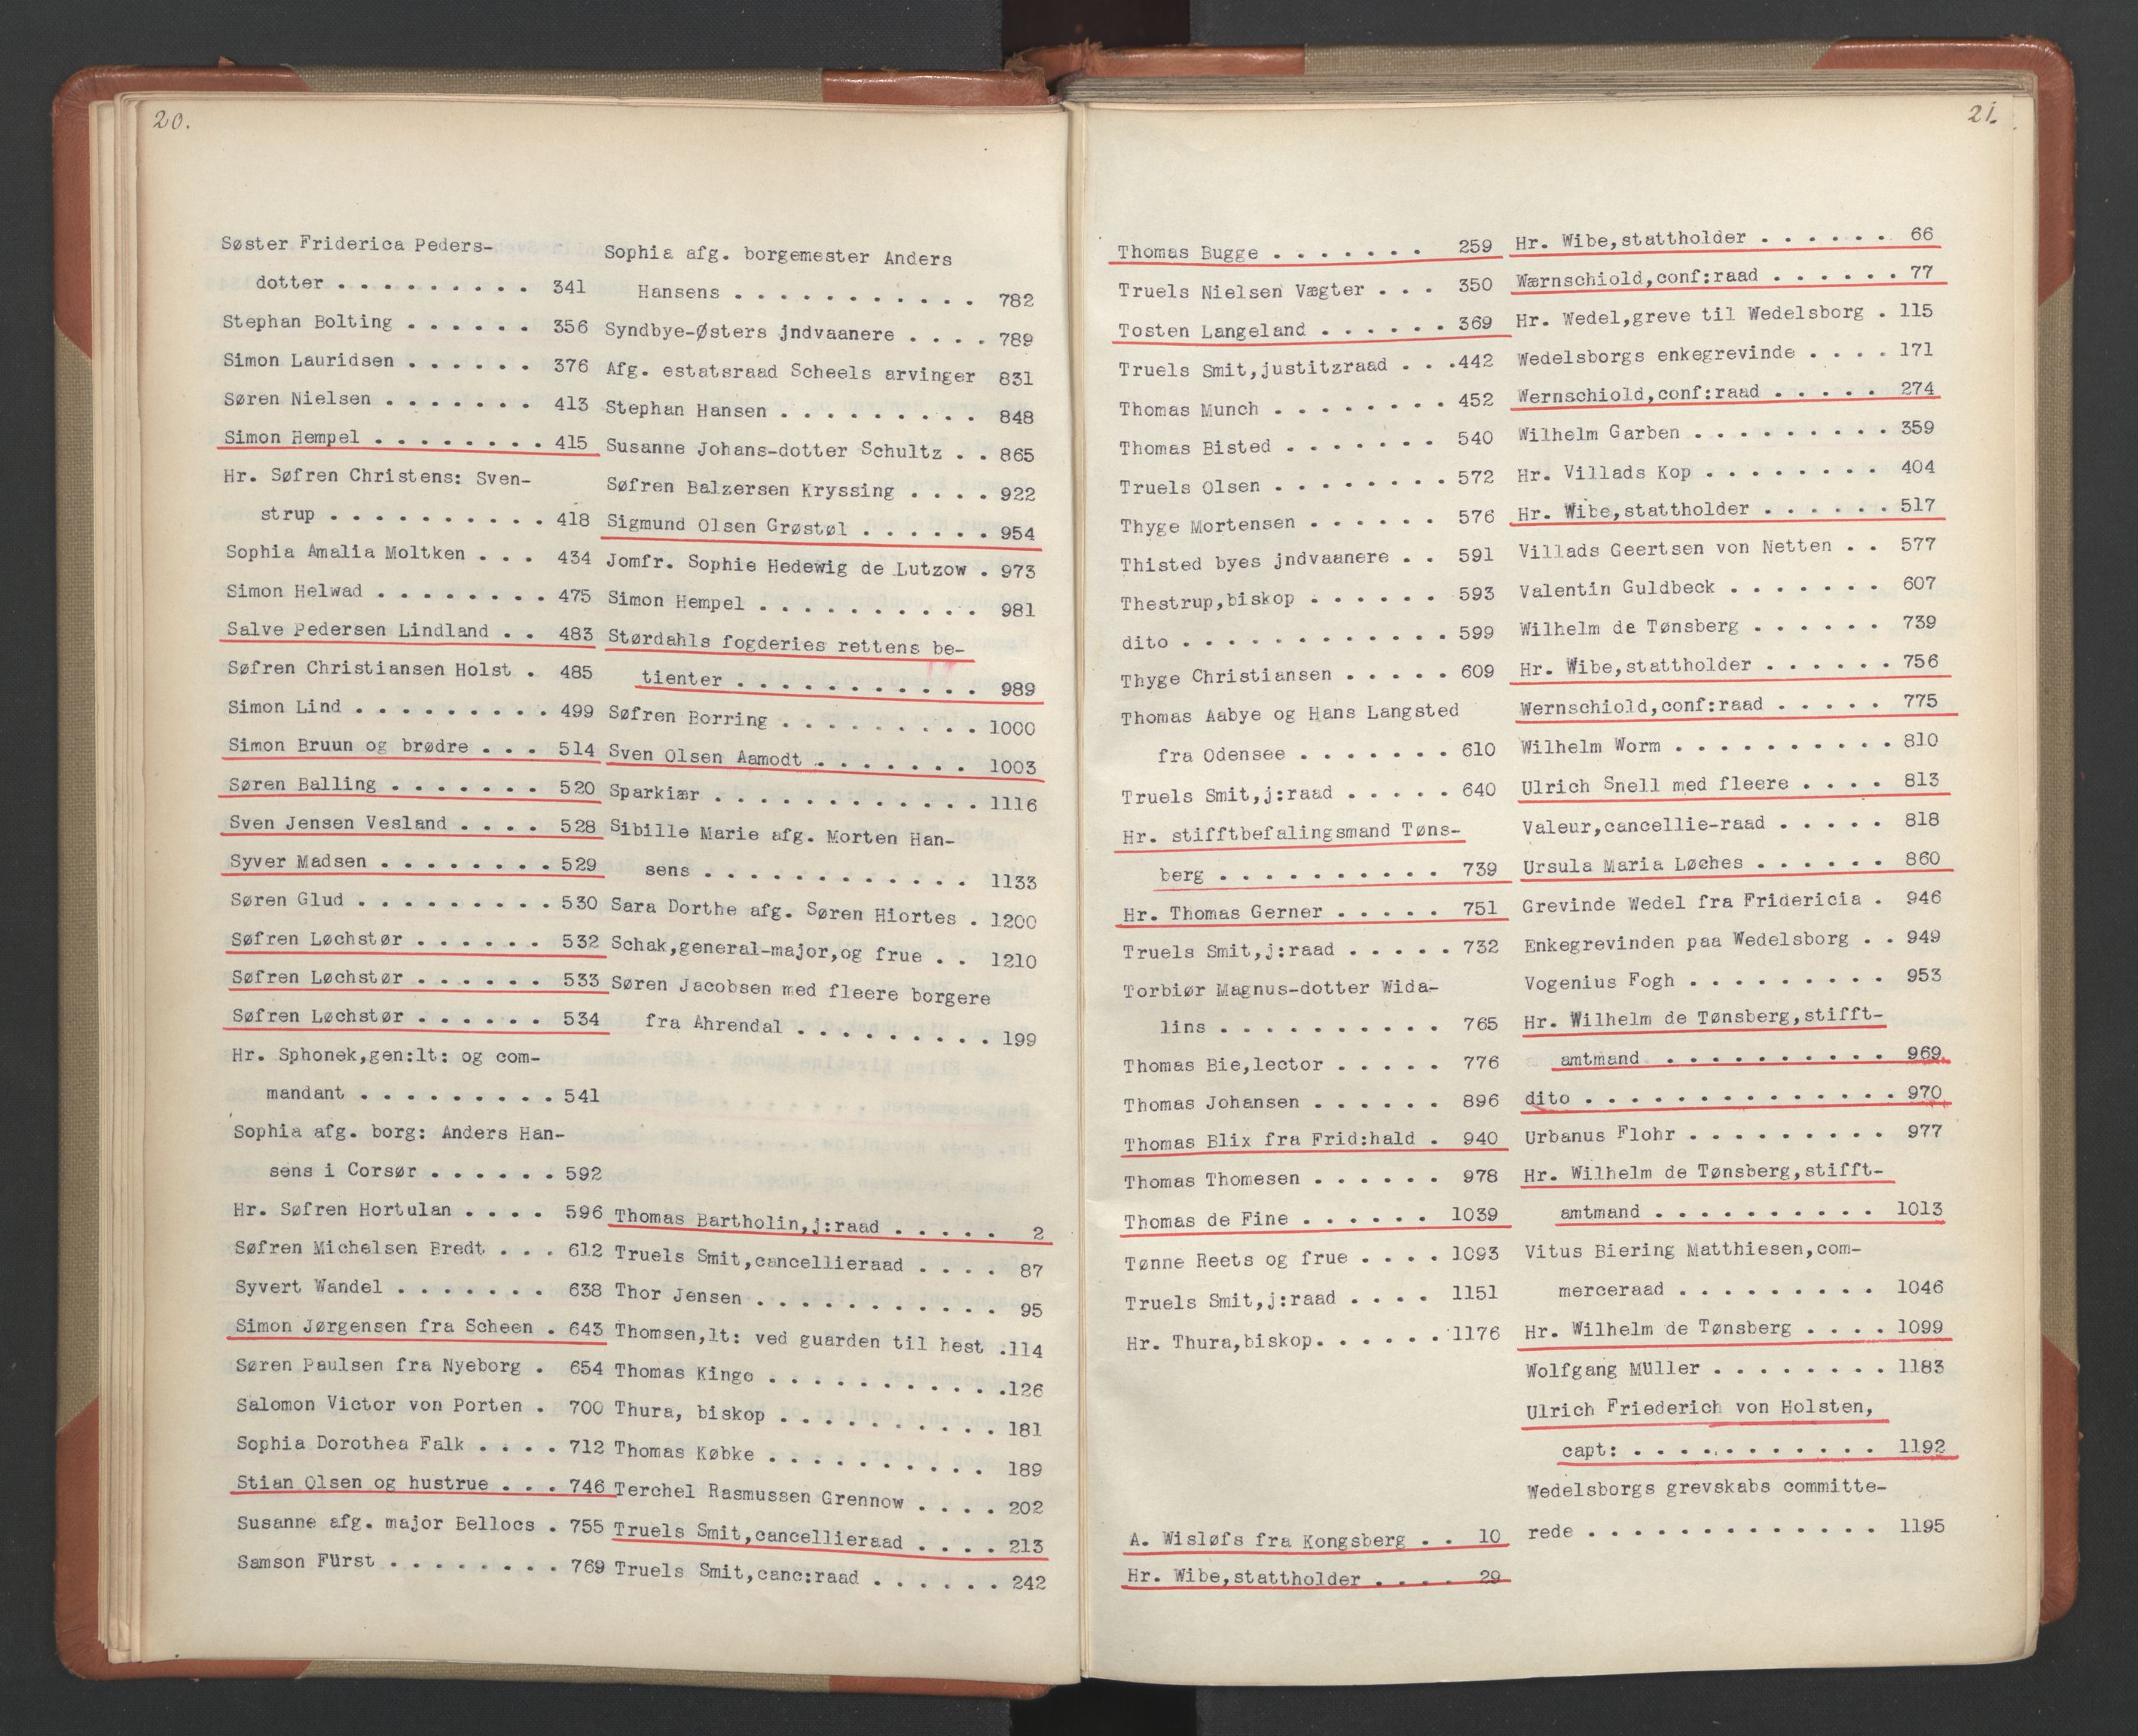 20.
Søster Friderica Peders-
dotter . . . . . . . . . 341
Stephan Bolting . . . . . . 356
Simon Lauridsen . . . . . . 376
Søren Nielsen . . . . . . . 413
Simon Hempel . . . . . . . . 415
Hr. Søfren Christens: Sven-
strup . . . . . . . . . . 418
Sophia Amalia Moltken . . . 434
Simon Helwad . . . . . . . . 475
Salve Pedersen Lindland . . 483
Søfren Christiansen Holst . 485
Simon Lind . . . . . . . . . 499
Simon Bruun og brødre . . . 514
Søren Balling . . . . . . . 520
Sven Jensen Vesland . . . . 528
Syver Madsen . . . . . . . . 529
Søren Glud . . . . . . . . . 530
Søfren Løchstør . . . . . . 532
Søfren Løchstør . . . . . . 533
Søfren Løchstør . . . . . . 534
Hr. Sphonek,gen:lt: og com-
mandant . . . . . . . . . 541
Sophia afg. borg: Anders Han-
sens i Corsør . . . . . . 592
Hr. Søfren Hortulan . . . . 596
Søfren Michelsen Bredt . . . 612
Syvert Wandel . . . . . . . 638
Simon Jørgensen fra Scheen . 643
Søren Paulsen fra Nyeborg . 654
Salomon Victor von Porten . 700
Sophia Dorothea Falk . . . . 712
Stian Olsen og hustrue . . . 746
Susanne afg. major Bellocs . 755
Samson Fürst . . . . . . . . 769
Sophia afg. borgemester Anders
Hansens . . . . . . . . . . . 782
Syndbye-Østers jndvaanere . . . . 789
Afg. estatsraad Scheels arvinger 831
Stephan Hansen . . . . . . . . . 848
Susanne Johans-dotter Schultz . . 865
Søfren Balzersen Kryssing . . . . 922
Sigmund Olsen Grøstøl . . . . . . 954
Jomfr. Sophie Hedewig de Lutzow . 973
Simon Hempel . . . . . . . . . . 981
Størdahls fogderies rettens be-
tienter . . . . . . . . . . . 989
Søfren Borring . . . . . . . . . 1000
Sven Olsen Aamodt . . . . . . . 1003
Sparkiær . . . . . . . . . . . . 1116
Sibille Marie afg. Morten Han-
sens . . . . . . . . . . . . 1133
Sara Dorthe afg. Søren Hiortes . 1200
Schak,general-major,og frue . . 1210
Søren Jacobsen med fleere borgere
fra Ahrendal . . . . . . . . . 199
Thomas Bartholin,j:raad . . . . . 2
Truels Smit,cancellieraad . . . . 87
Thor Jensen . . . . . . . . . . . 95
Thomsen,lt: ved guarden til hest .114
Thomas Kingo . . . . . . . . . . .126
Thura, biskop . . . . . . . . . . 181
Thomas Købke . . . . . . . . . . 189
Terchel Rasmussen Grennow . . . . 202
Truels Smit,cancellieraad . . . . 213
Truels Smit,canc:raad . . . . . . 242
21.
Thomas Bugge . . . . . . . 259
Truels Nielsen Vægter . . . 350
Tosten Langeland . . . . . . 369
Truels Smit,justitzraad . . .442
Thomas Munch . . . . . . . . 452
Thomas Bisted . . . . . . . 540
Truels Olsen . . . . . . . . 572
Thyge Mortensen . . . . . . 576
Thisted byes jndvaanere . . 591
Thestrup,biskop . . . . . . 593
dito . . . . . . . . . . . . 599
Thyge Christiansen . . . . . 609
Thomas Aabye og Hans Langsted
fra Odensee . . . . . . . 610
Truels Smit,j:raad . . . . . 640
Hr. stifftbefalingsmand Tøns-
berg . . . . . . . . . . 739
Hr. Thomas Gerner . . . . . 751
Truels Smit,j:raad . . . . . 732
Torbiør Magnus-dotter Wida-
lins . . . . . . . . . . 765
Thomas Bie,lector . . . . . 776
Thomas Johansen . . . . . . 896
Thomas Blix fra Frid:hald . 940
Thomas Thomesen . . . . . . 978
Thomas de Fine . . . . . . 1039
Tønne Reets og frue . . . . 1093
Truels Smit,j:raad . . . . 1151
Hr. Thura,biskop. . . . . . 1176
A. Wisløfs fra Kongsberg . . 10
Hr. Wibe,stattholder . . . . 29
Hr. Wibe,stattholder . . . . . . 66
Wærnschiold,conf:raad . . . . . . 77
Hr. Wedel,greve til Wedelsborg . 115
Wedelsborgs enkegrevinde . . . . 171
Wernschiold,conf:raad . . . . . 274
Wilhelm Garben . . . . . . . . . 359
Hr. Villads Kop . . . . . . . . 404
Hr. Wibe,stattholder . . . . . . 517
Villads Geertsen von Netten . . 577
Valentin Guldbeck . . . . . . . 607
Wilhelm de Tønsberg . . . . . . 739
Hr. Wibe,stattholder . . . . . . 756
Wernschiold,conf:raad . . . . . 775
Wilhelm Worm . . . . . . . . . . 810
Ulrich Snell med fleere . . . . 813
Valeur,cancellie-raad . . . . . 818
Ursula Maria Løches . . . . . . 860
Grevinde Wedel fra Fridericia . 946
Enkegrevinden paa Wedelsborg . . 949
Vogenius Fogh . . . . . . . . . 953
Hr. Wilhelm de Tønsberg,stifft-
amtmand . . . . . . . . . . 969
dito . . . . . . . . . . . . . . 970
Urbanus Flohr . . . . . . . . . 977
Hr. Wilhelm de Tønsberg,stifft-
amtmand . . . . . . . . . . 1013
Vitus Biering Matthiesen,com-
merceraad . . . . . . . . . 1046
Hr. Wilhelm de Tønsberg . . . . 1099
Wolfgang Müller . . . . . . . . 1183
Ulrich Friederich von Holsten,
capt: . . . . . . . . . . . 1192
Wedelsborgs grevskabs committe-
rede . . . . . . . . . . . . . 1195